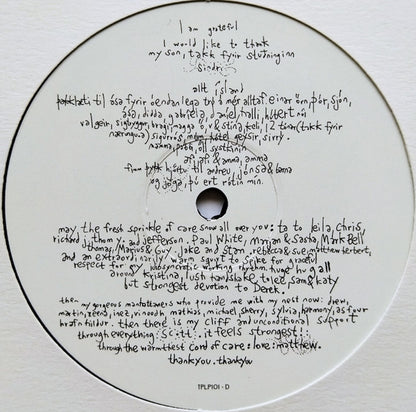 I am grateful
I would like to thank
my son, takk fyrir stuðninginn
Sindri
allt ísland
þakklæti til ása fyrir óendanlega trú á mér alltaf. einar örn, þór, sjón,
ása, didda, gabríela, daníel, halli,
valgeir, sigtryggur, bragi, magga & stína, keli, 12 tónar (takk fyrir
næringu) sigurrós, múm, hótel geysir, sirry.
mamma, pabbi, öll systkini
afi, afi & amma, amma
til andreu, jónsa & bama
og jóga, þú ert rótin mín.
may the fresh sprinkle of care snow all over you: ta to leila, Chris,
richard j, thom y. and jefferson. Paul White, Marjan & Sasha, Mark Bell,
thomas, Marius & Guy, Jake and Stan, rebecca & sue, matthew herbert,
and an extraordinarily warm squrt to Spike for graceful
respect for my idiosyncratic working rhythm huge hug all
around kristina, lush tandslake, trieZ, Sam & katy
but strongest devotion to Derek.
then my gorgeous manhattaners who provide me with my nest now: drew,
martin, zeena, inez, vinoodh, mathias, michael, sherry, sylvia, harmony, as four
hrafntildur. then there is my cliff and unconditional support
through everything: scott. it feels strongest!
through the warmthest cord of care: love: matthew.
thankyou. thankyou
TPLP101 - D